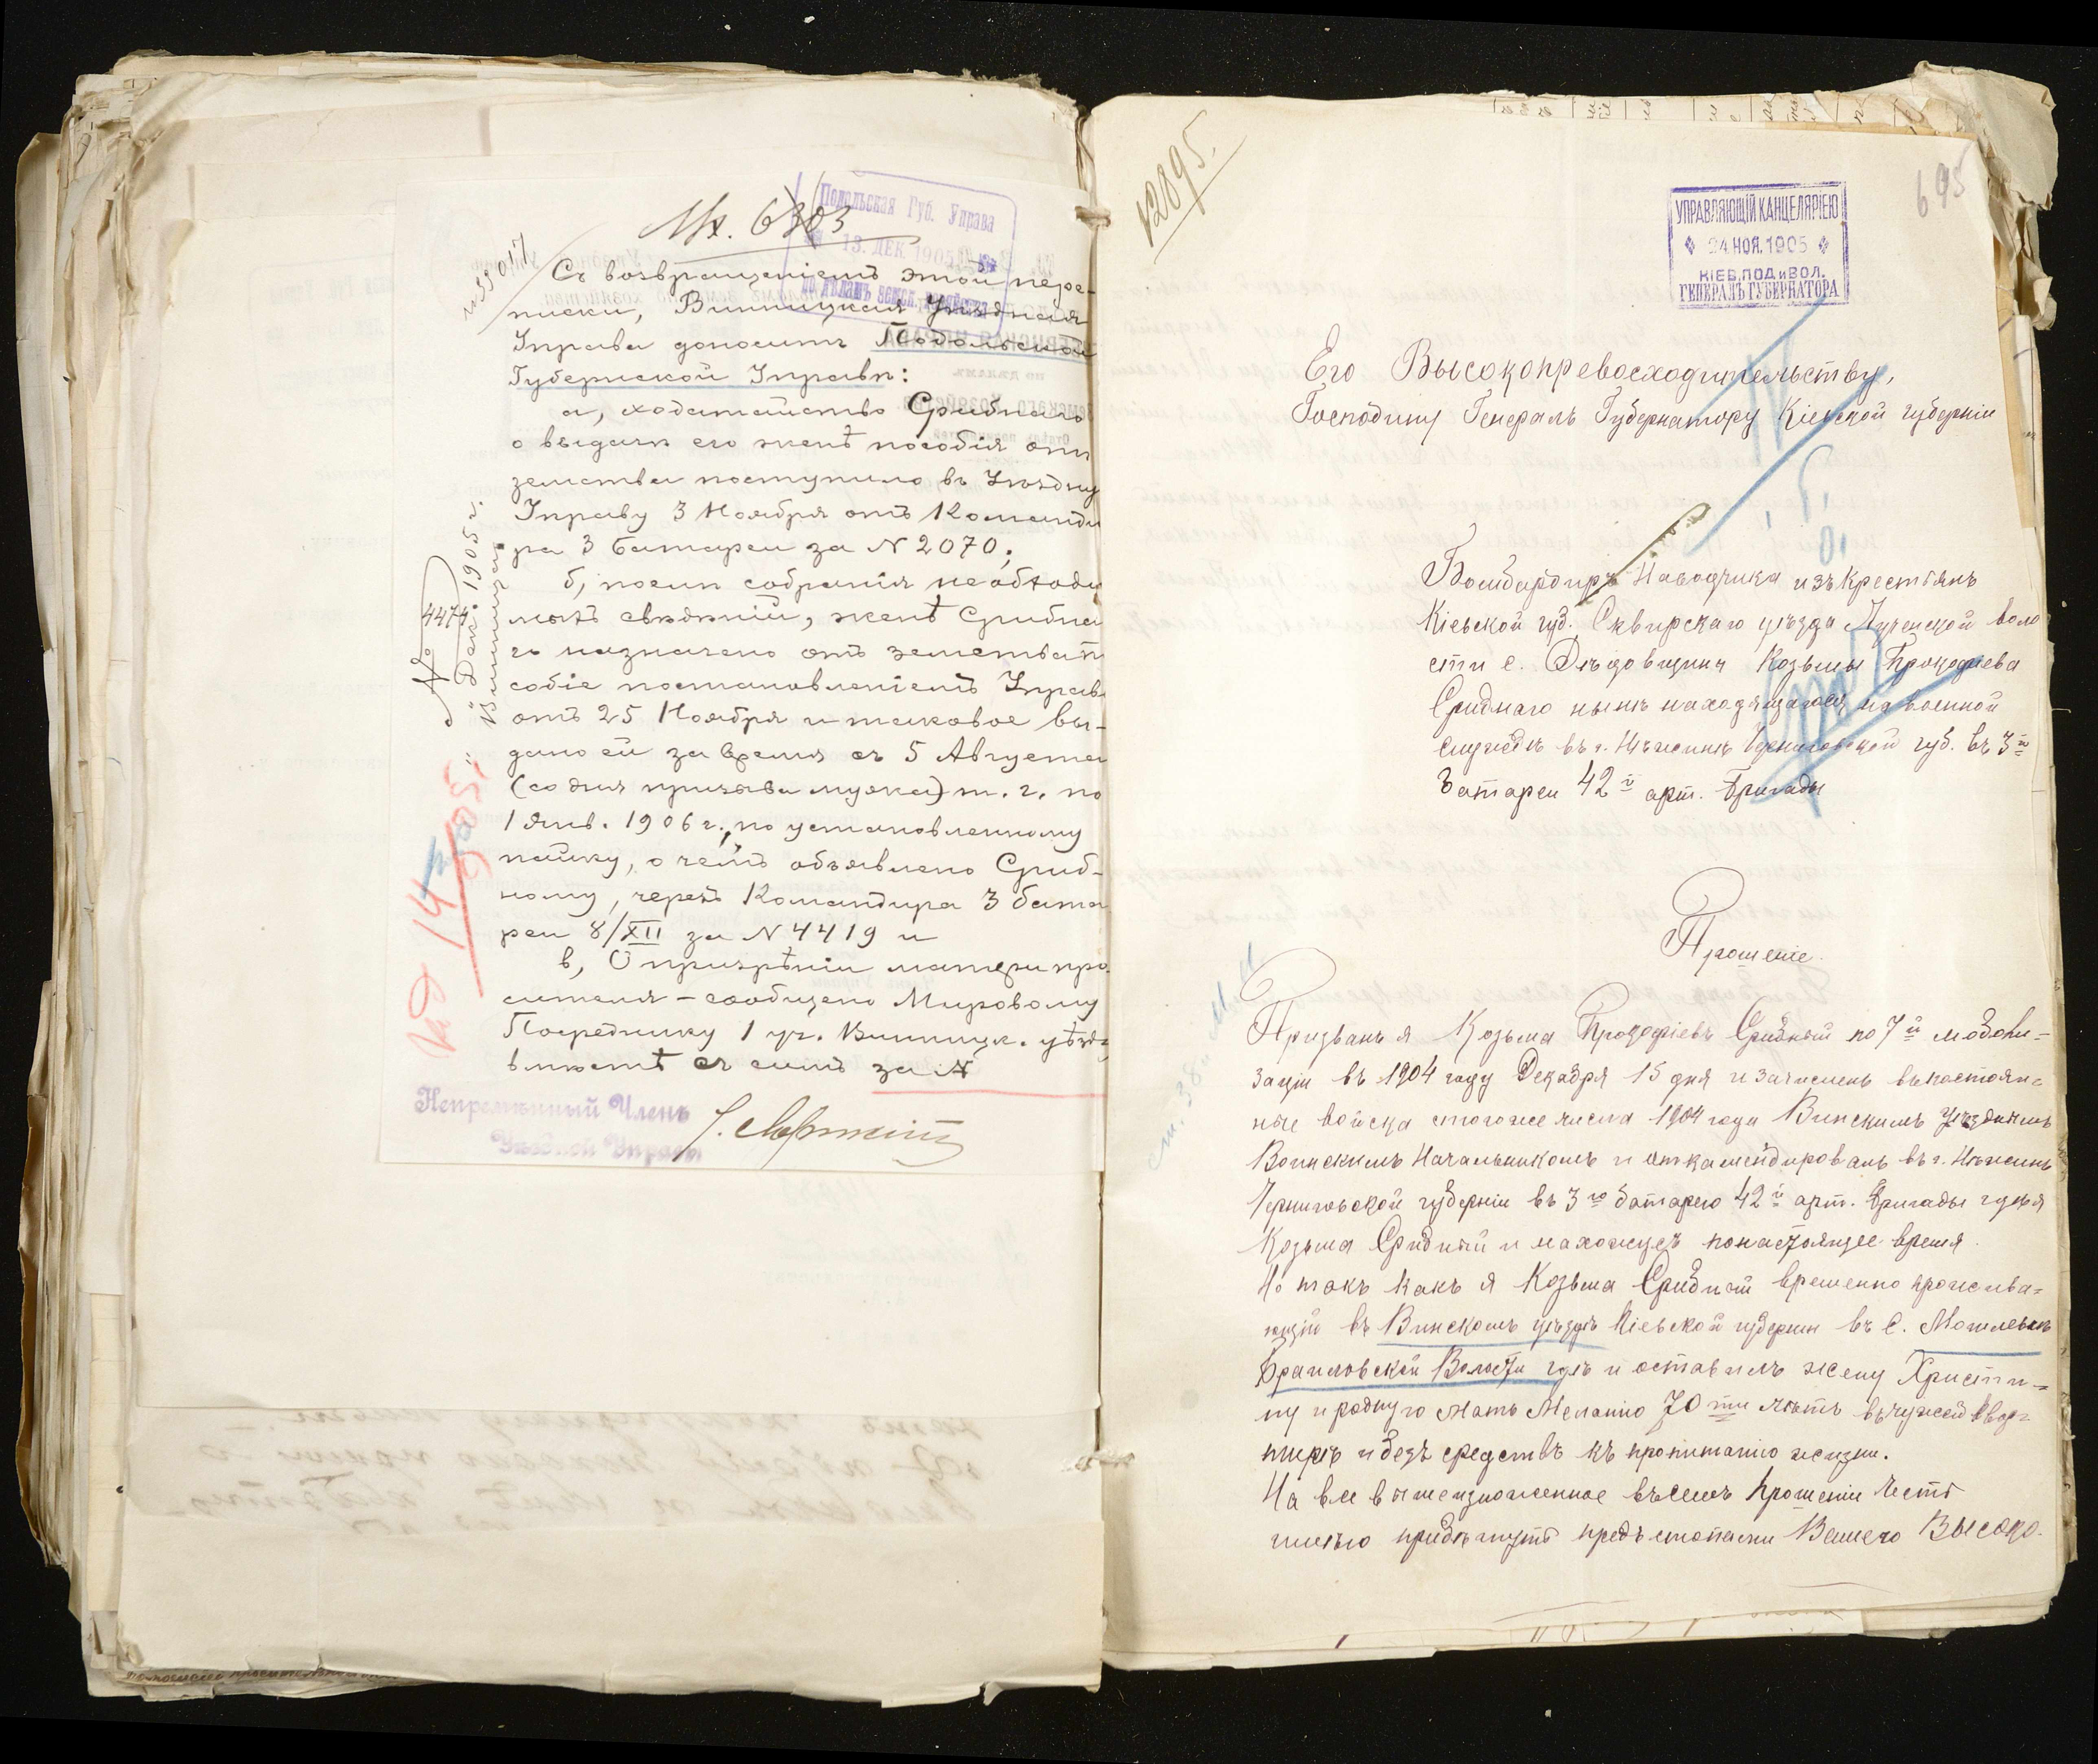 Вх. 6303
Подольская Губ. Управа
13. ДЕК. 1905
по дѣламъ земск. хозяйства
Съ возвращеніемъ этой пере-
писки, Винницкая Уѣздная
Управа доноситъ Подольской
Губернской Управѣ:
а, ходатайство Срибнаго
о выдачѣ его женѣ пособія отъ
земства поступило въ Уѣздну
Управу 3 Ноября отъ Команди
ра 3 батареи за N 2070;
б, послѣ собранія необходи
мыхъ свѣдѣній, женѣ Срибна
го назначено отъ земства п
собіе постановленіемъ Управ
отъ 25 Ноября и таковое вы-
дано ей за время съ 5 Августа
(со дня призыва мужа) т. г. по
1 Янв. 1906 г., по установленному
пайку, о чемъ объявлено Сриб-
ному, черезъ Командира 3 бата
реи 8/XII за N 4419 и
в, О призрѣніи матери про
сителя – сообщено Мировому
Посреднику 1 уч. Винницк. уѣзд
вмѣстѣ съ симъ за N
Непремѣнный Членъ
Уѣздной Управы
№ 4474
Дек. 1905 г.
Винница
14
12895.
695
УПРАВЛЯЮЩІЙ КАНЦЕЛЯРІЕЮ
24 НОЯ. 1905
КІЕВ. ПОД. и ВОЛ.
ГЕНЕРАЛЪ ГУБЕРНАТОРА
Его Высокопревосходительству,
Господину Генералъ Губернатору Кіевской губерніи
Бомбардиръ Наводчика изъ Крестьянъ
Кіевской губ. Сквирскаго уѣзда воло
сти с. Козьмы Прокофіева
Срибнаго нынѣ находящагося на военной
службѣ въ г. Нѣжинѣ Черниговской губ. въ 3й
батареи 42й арт. бригады
Прошеніе.
Призванъ я Козьма Прокофіевъ Срибный по 7й мобили-
заціи въ 1904 году Декабря 15 дня и зачисленъ въ постоян-
ные войска тогоже числа 1904 года Винскимъ Уѣзднымъ
Воинскимъ Начальникомъ и откамендированъ въ г. Нѣжинъ
Черниговской губерніи въ 3ю батарею 42й арт. бригады гдѣ я
Козьма Срибный и нахожусъ понастоящее время.
Но такъ какъ я Козьма Срибный временно прожива-
ющій въ Винскомъ уѣздѣ Кіевской губерніи въ С. Могилевкѣ
Браиловской Волости гдѣ и оставилъ жену Христи-
ну и родную Мать Меланію 70ти лѣтъ въ чужей квар-
тирѣ и безъ средствъ къ пропитанію жизни.
На все вышеизложенное въ семъ прошеніи честь
имѣю прибѣгнуть предъ стопами Вашего Высоко-